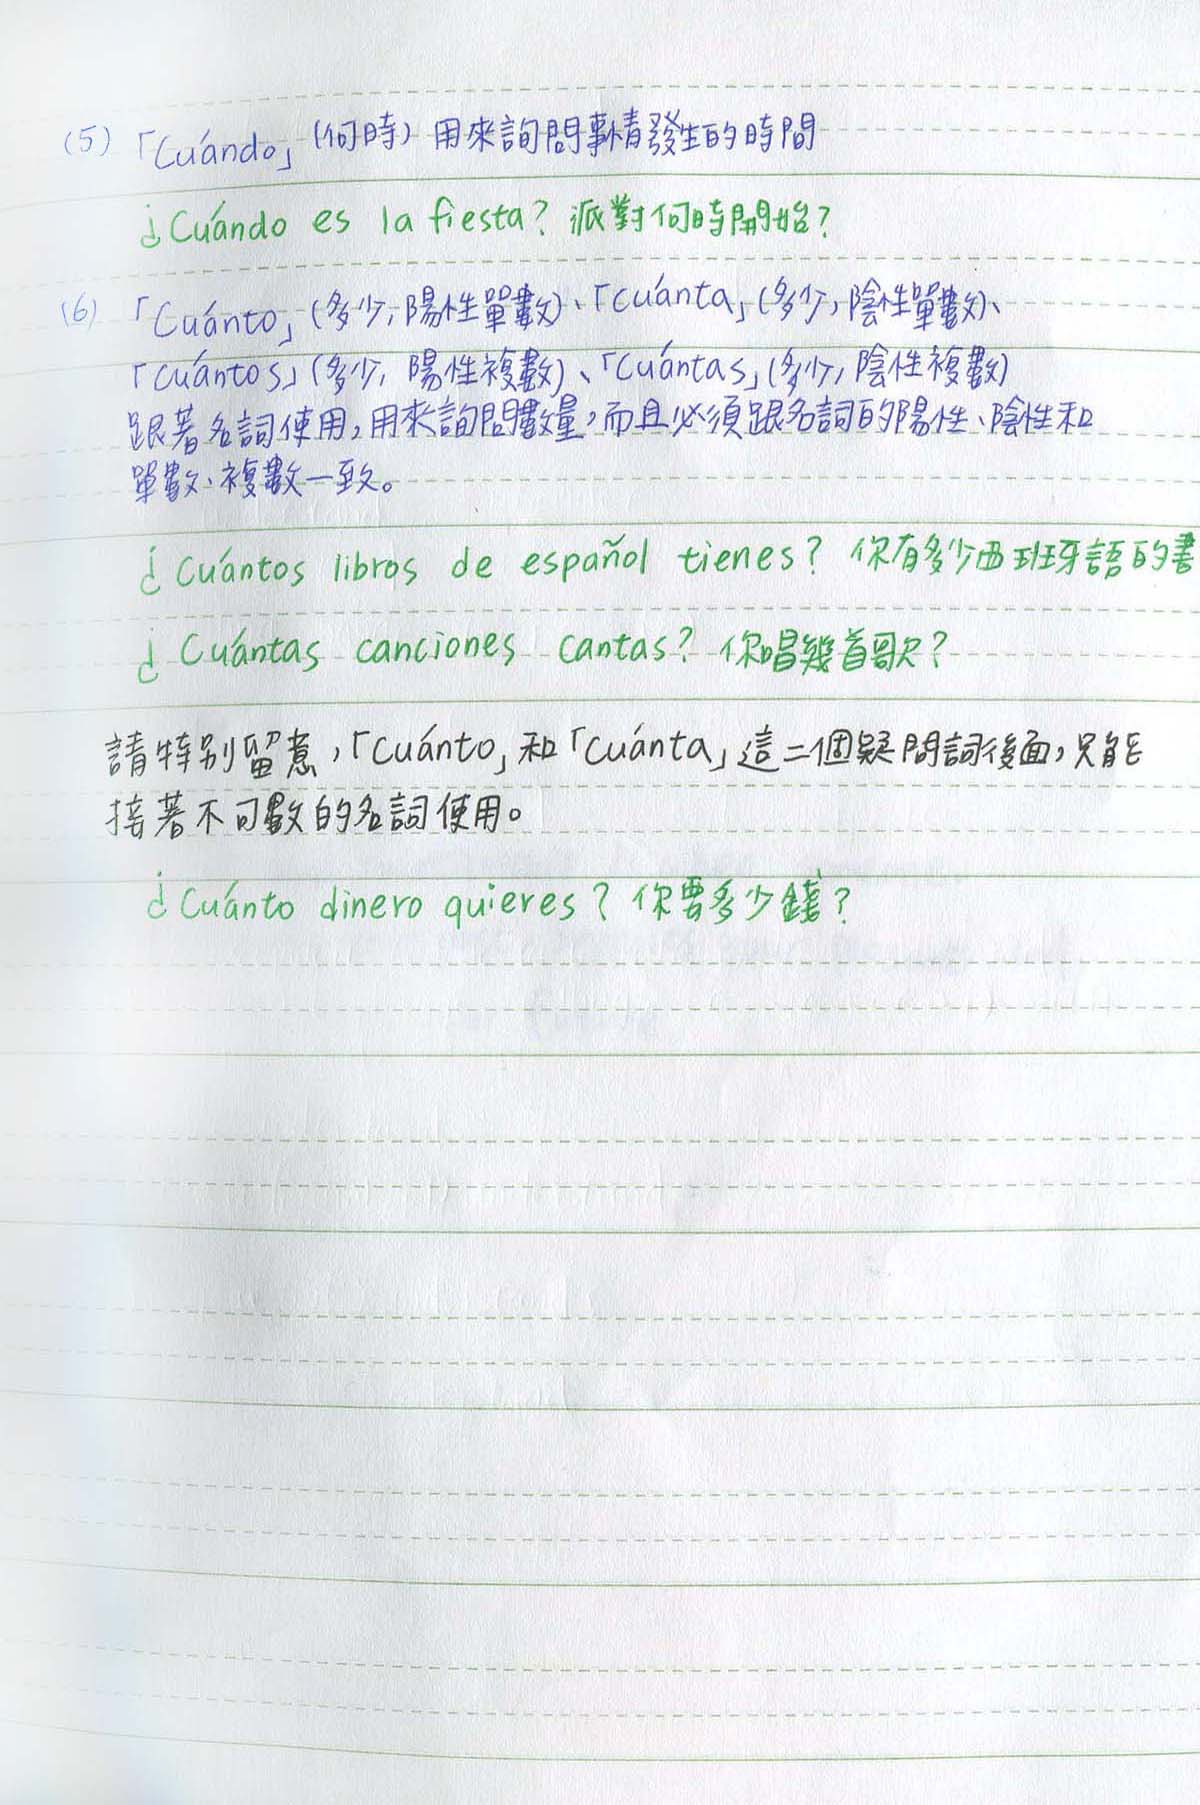 (5)「Cuándo」(何時) 用來詢問事情發生的時間
¿Cuándo es la fiesta? 派對何時開始?
(6)「Cuánto」(多少,陽性單數)、「Cuánta」(多少,陰性單數)、
「Cuántos」(多少,陽性複數)、「Cuántas」(多少,陰性複數)
跟著名詞使用,用來詢問數量,而且必須跟名詞的陽性、陰性和
單數、複數一致。
¿Cuántos libros de español tienes? 你有多少西班牙語的書
¿Cuántas canciones cantas? 你唱幾首歌?
請特別留意,「Cuánto」和「Cuánta」這二個疑問詞後面,只能
接著不可數的名詞使用。
¿Cuánto dinero quieres? 你要多少錢?